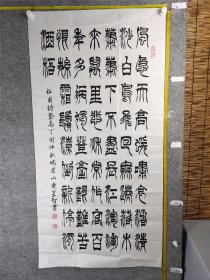 風急天高猿嘯哀渚清
沙白鳥飛回無邊落木
蕭蕭下不盡長江滾滾
來萬里悲秋常作客百
年多病獨登臺艱難苦
恨繁霜鬢潦倒新停濁
酒杯
杜甫詩登高丁酉仲秋峨眉山黃智書